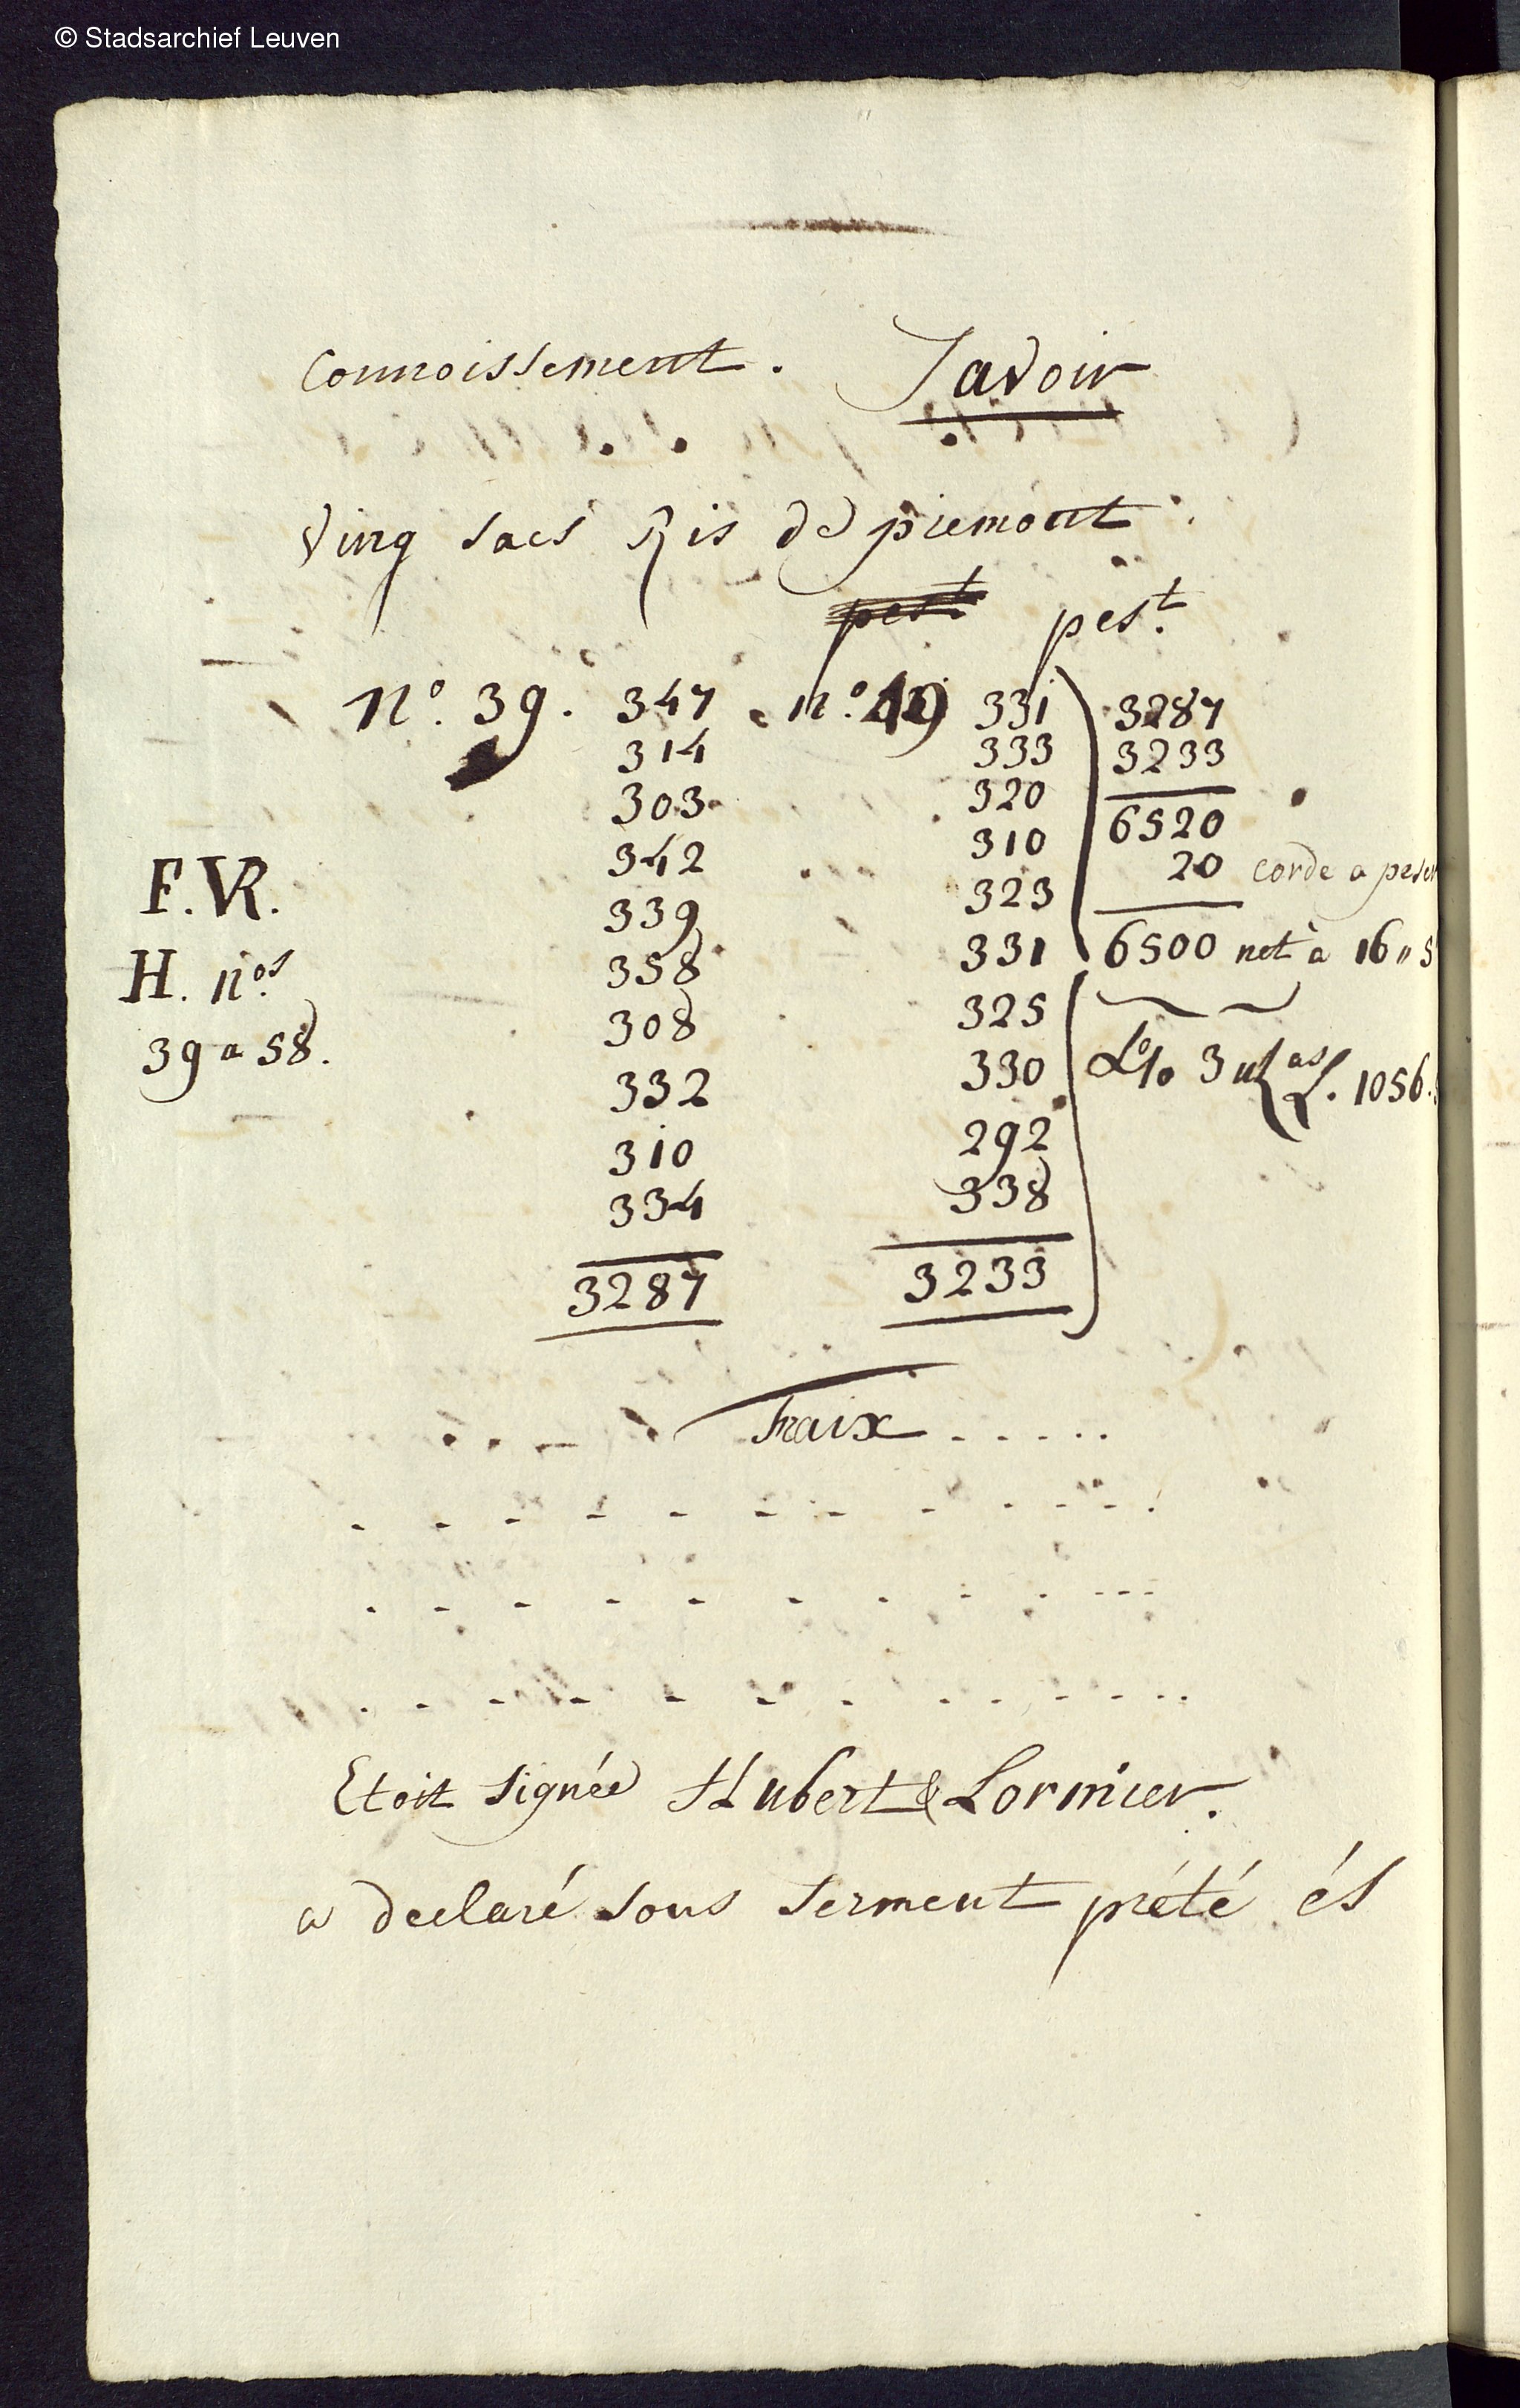 © Stadsarchief Leuven
Connoissement. Savoir
Ving sacs Ris de piemont.
pest.
N.º 39. 347 n.º 49 331 3287
314 333 3233
303 320 6520
342 310 20 corde a peser
339 323
358 331 6500 net à 16 " 5
308 325
332 330 L. 1056.
310 292
334 338
3287 3233
F. VR.
H. n.os
39 a 58.
fraix
Etoit signée Hubert & Lormier.
a declaré sous serment prété és